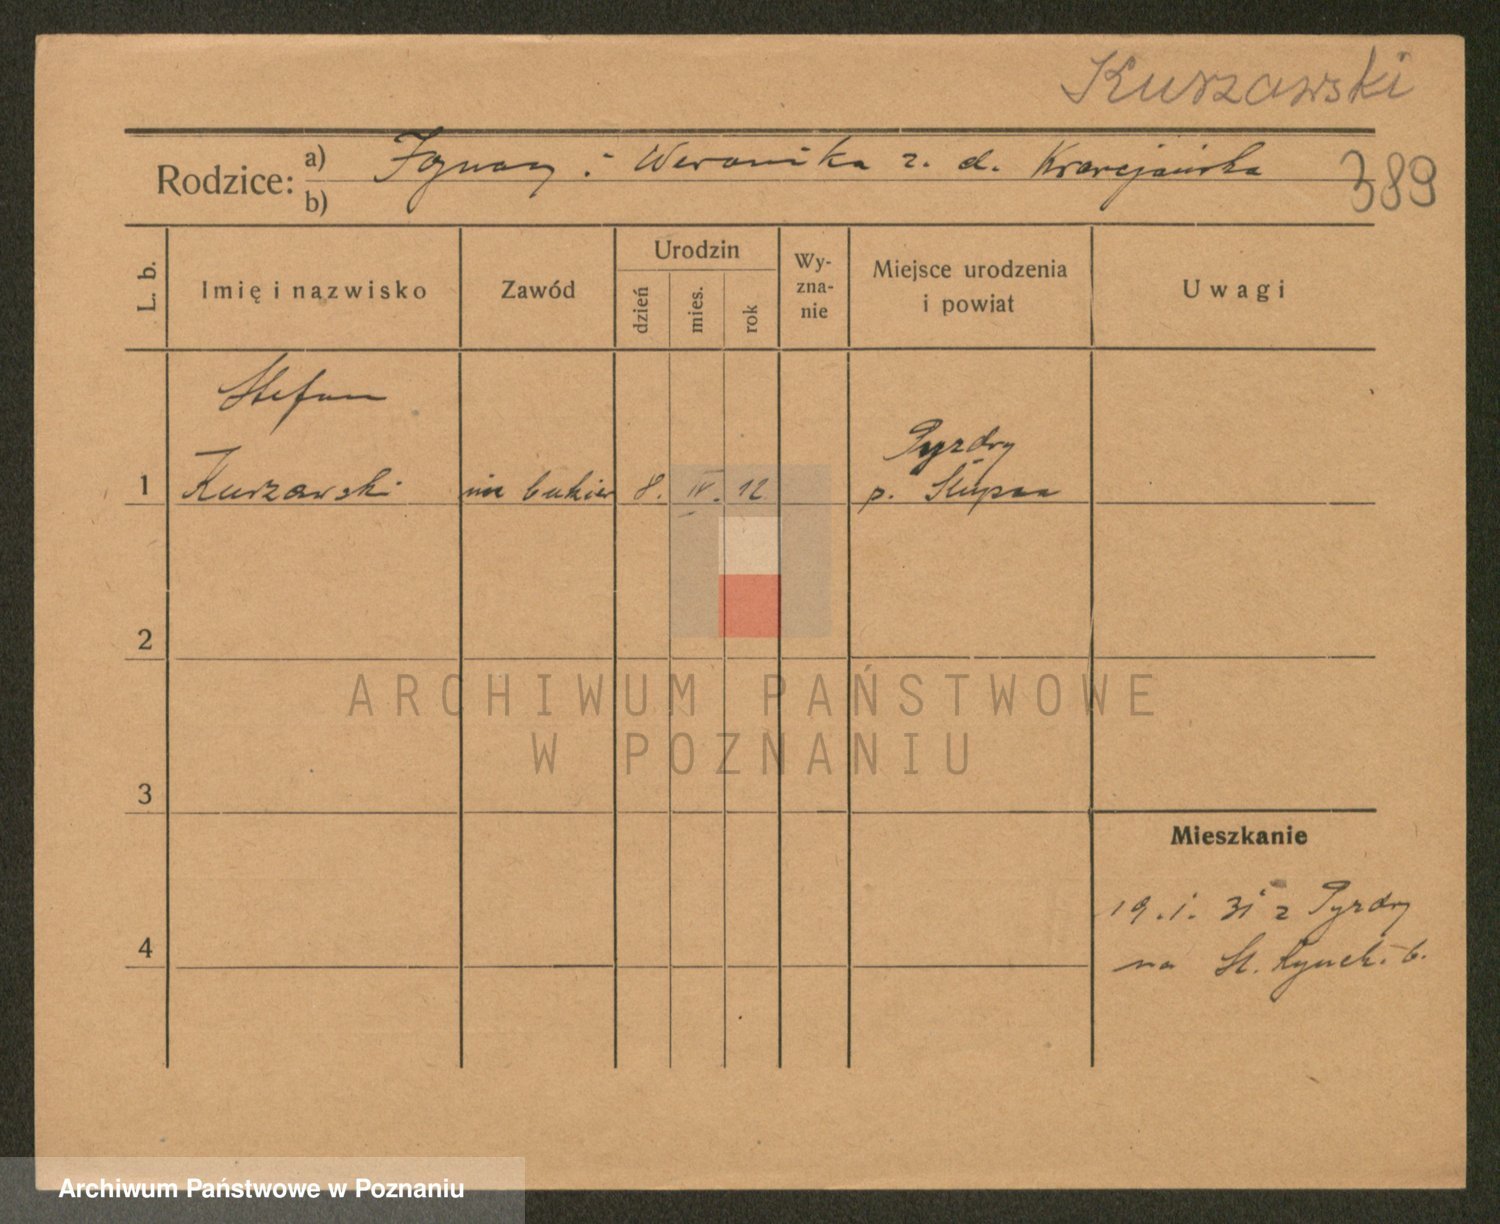 Kurzawski
Rodzice: a) Ignacy i Weronika z. d.
b)
389
L. b.
Imię i nazwisko
Zawód
Urodzin
dzień
mies.
rok
Wy-
zna-
nie
Miejsce urodzenia
i powiat
Uwagi
Stefan
1 Kurzawski 8. IV. 12
Pyzdry
p. Słupca
2
3
4
Mieszkanie
19. I. 31 z Pyzdry
na St. Rynek. 6.
ARCHIWUM PAŃSTWOWE
W POZNANIU
Archiwum Państwowe w Poznaniu